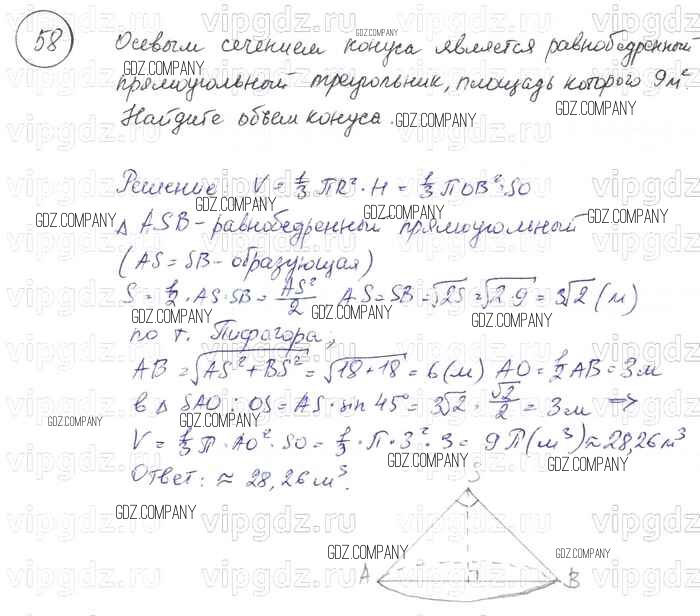 58 Осевым сечением конуса является равнобедренный
прямоугольный треугольник, площадь которого 9м².
Найдите объем конуса.
Решение V = 1/3 ПR²·H = 1/3 ПOB²·SO
Δ ASB - равнобедренный прямоугольный
(AS = SB - образующая)
S = 1/2 · AS·SB = AS²/2 AS = SB = √2S = √2·9 = 3√2 (м)
по т. Пифагора;
AB = √AS²+BS² = √18+18 = 6 (м) AO = 1/2 AB = 3м
в Δ SAO : OS = AS · sin 45° = 3√2 · √2/2 = 3м ⇒
V = 1/3 П · AO² · SO = 1/3 · П · 3² · 3 = 9П (м³) ≈ 28,26м³
Ответ: ≈ 28,26м³.
S
A B
GDZ.COMPANY
vipgdz.ru